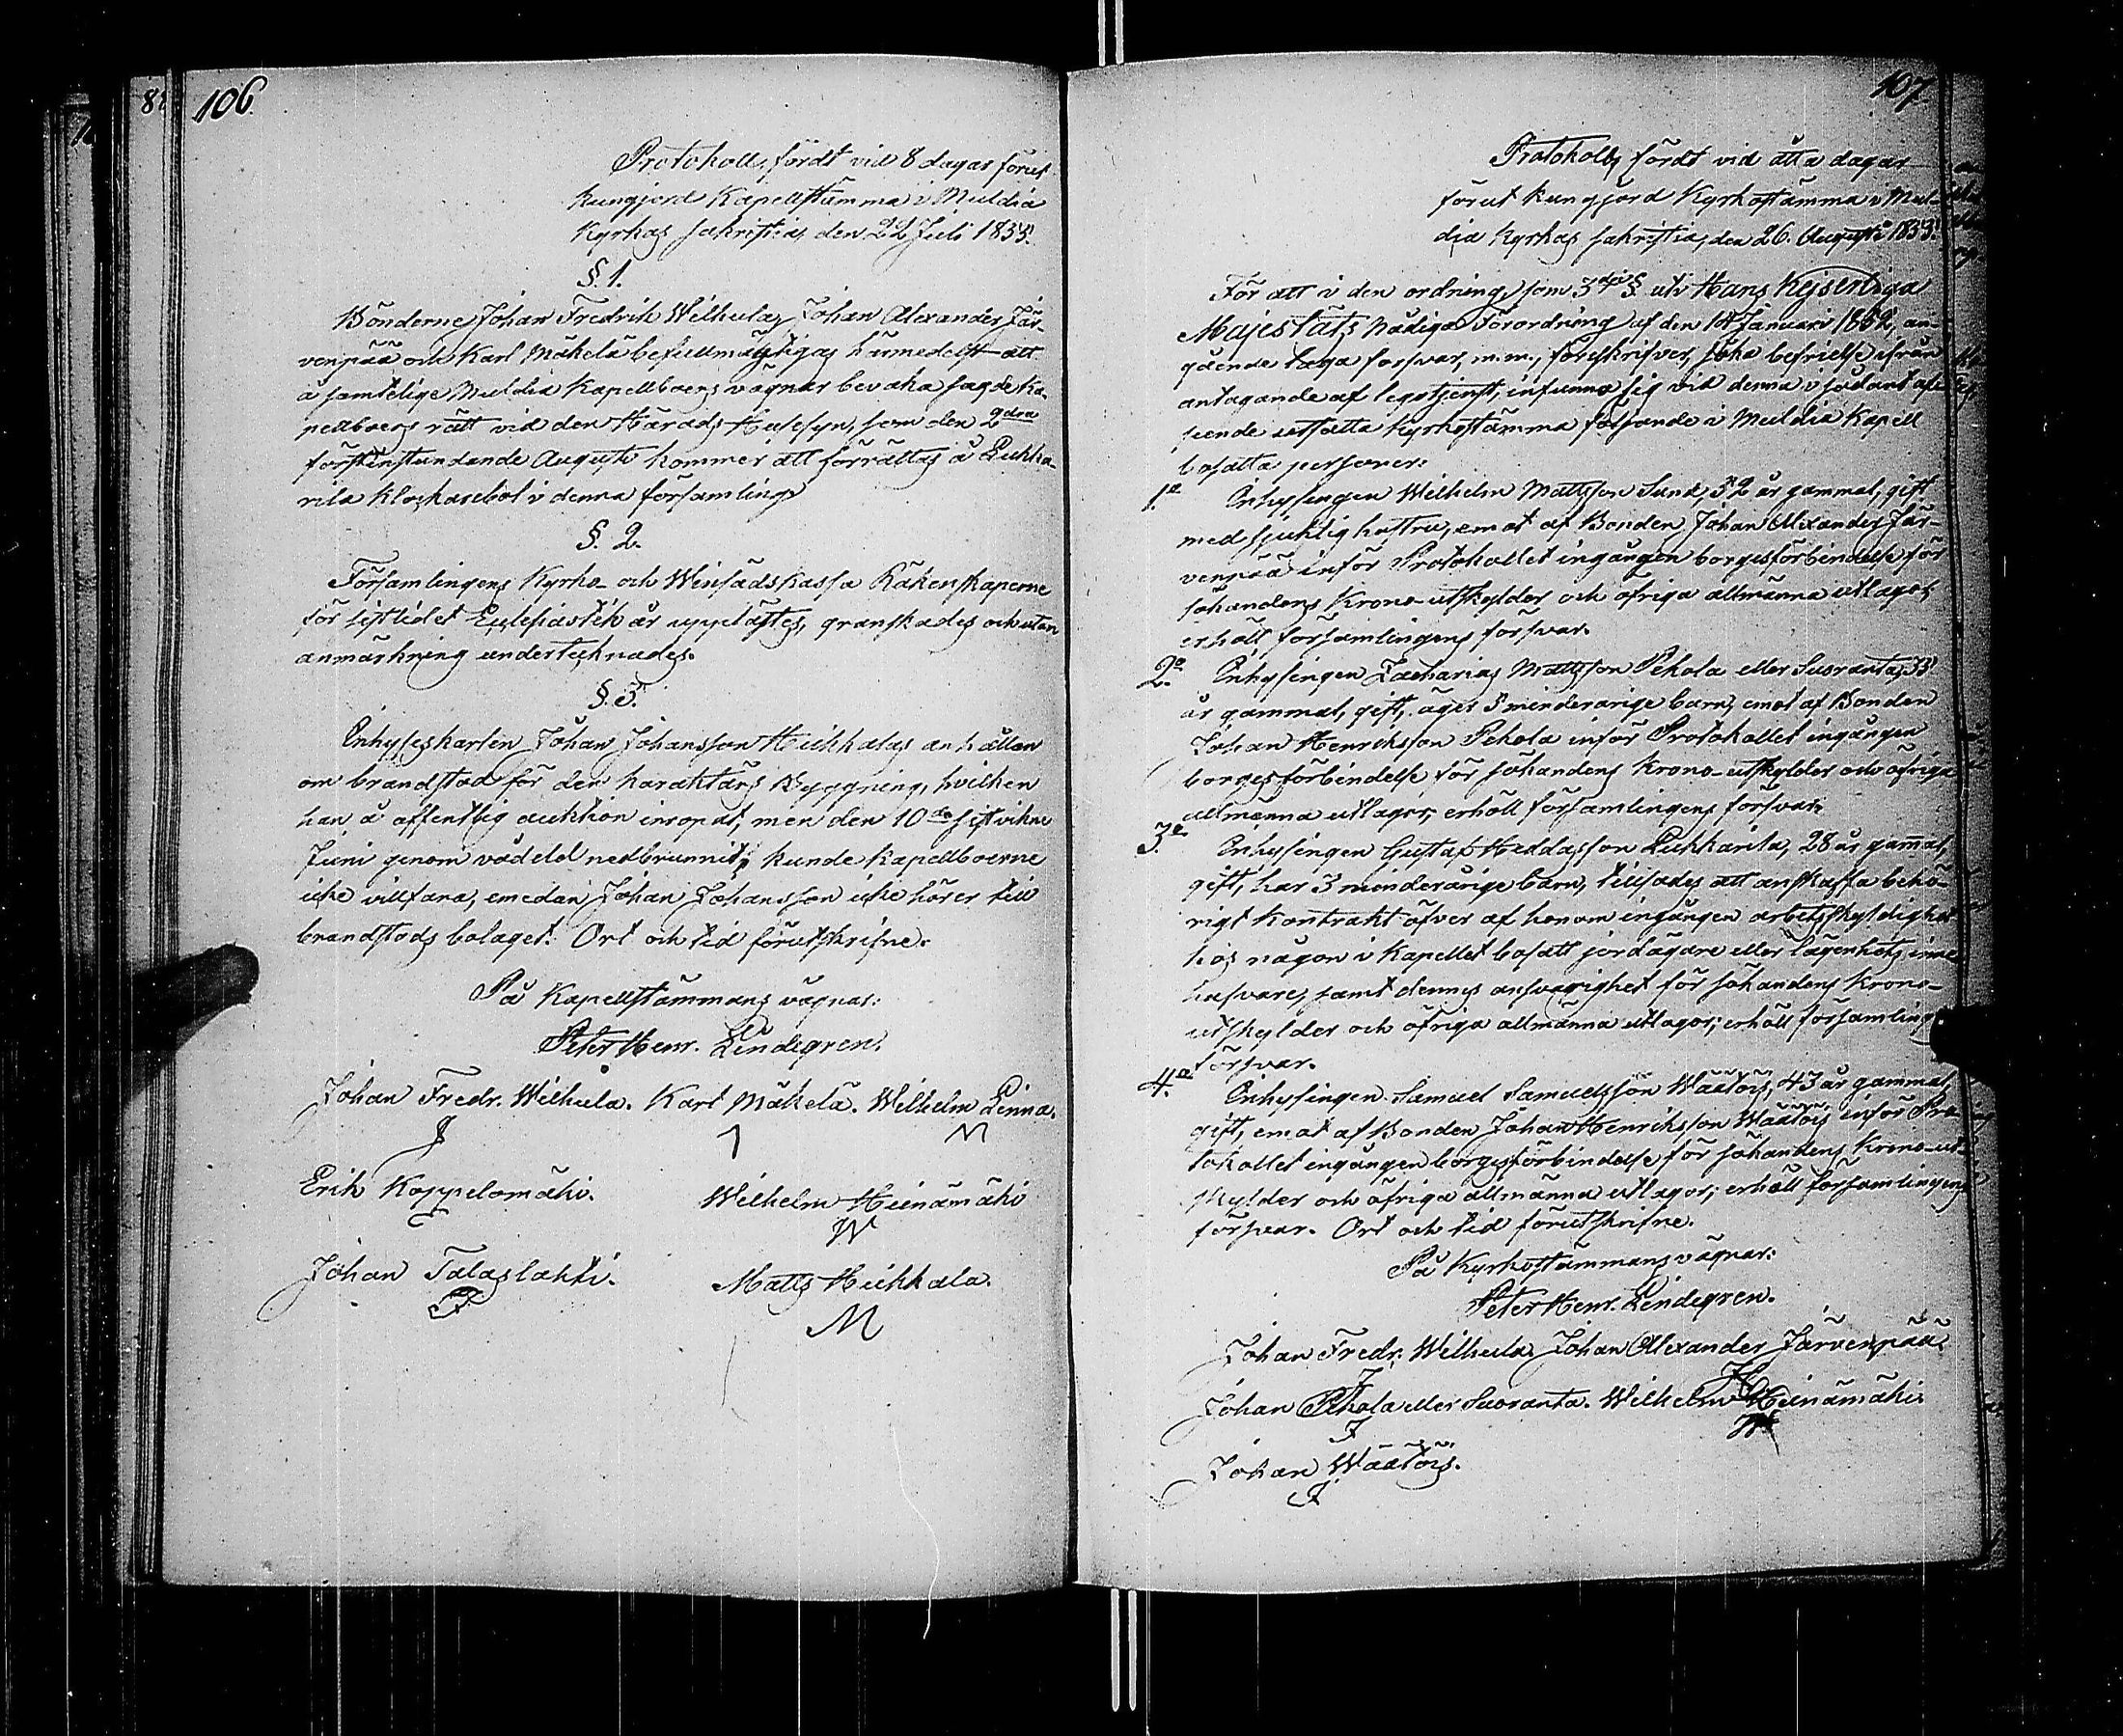 106.
Protokoll, fördt vid 8 dagar förut
kungjord Kapellstämma i Muldia
Kyrkas sakristia, den 22 Juli 1833.
§. 1.
Bönderne Johan Fredrik Wilhula, Johan Alexander Jär-
venpää och Karl Mäkelä befullmägtigas härmedelst att
å samtelige Muldia Kapellboers vägnar bevaka sagde Ka-
pellboers rätt vid den Härads Husesyn, som den 2dra
förstinstundande Augusti kommer att förrättas å Pukka-
rila Klockarebol i denna församling.
§. 2.
Församlingens Kyrko- och Winsädskassa Räkenskaperne
för sistlidet Ecklesiastik år upplästes, granskades och utan
anmärkning undertecknades.
§. 3.
Inhyseskarlen Johan Johansson Hickkalas anhållan
om brandstod för den karaktärs Byggning, hvilken
han å offentlig auktion inropat, men den 10de sistvikne
Juni genom vådeld nedbrunnit, kunde Kapellboerne
icke villfara, emedan Johan Johansson icke hörer till
brandstods bolaget. Ort och tid förutskrifne.
På Kapellstämmans vägnar:
Peter Henr. Lindegren.
Johan Fredr. Wilhula. Karl Mäkelä. Wilhelm Linna.
Erik Koppelomäki. Wilhelm Heinämäki
W
Johan Talaslahti. Matts Hickkala.
M
107
Protokoll, fördt vid åtta dagar
förut kungjord Kyrkostämma i Mul-
dia Kyrkas sakristia, den 26. Augusti 1833.
För att i den ordning, som 3dje § uti Hans Kejserliga
Majestäts Nådiga Förordning af den Januari 1832, an-
gående laga försvar, m.m., föreskrifver, söka befrielse ifrån
antagande af legotjenst, infunno sig vid denna i sådant af-
seende utsatta Kyrkostämma följande i Muldia Kapell
bosatta personer:
1.o Inhysingen Wilhelm Mattsson Sund, 32 år gammal, gift
med sjuklig hustru, emot af Bonden Johan Alexander Jär-
venpää inför Protokollet ingången borgesförbindelse för
sökandens Krono-utskylder och öfriga allmänna utlagor,
erhöll församlingens försvar.
2.o Inhysingen Zacharias Mattsson Pekola eller Suoranta, 33
år gammal, gift, äger 3 minderårige barn, emot af Bonden
Johan Henriksson Pekola inför Protokollet ingången
borgesförbindelse för sökandens Krono-utskylder och öfriga
allmänna utlagor, erhöll församlingens försvar.
3.o Inhysingen Gustaf Heddasson Pukkarila, 28 år gamal,
gift, har 3 minderårige barn, tillsades att anskaffa behö-
rigt Kontrakt öfver af honom ingången arbetsskyldighet
hos någon i Kapellet bosatt jordägare eller lägenhets inne-
hafvare, samt dennes ansvarighet för sökandens Krono-
utskylder och öfriga allmänna utlagor; erhöll församlings
försvar.
4.o Inhysingen Samuel Samuelsson Wäätöis, 43 år gammal,
gift, emot af Bonden Johan Henriksson Wäätöis inför Pro-
tokollet ingången borgesförbindelse för sökandens Krono-ut-
skylder och öfriga allmänna utlagor; erhöll församlingens
försvar. Ort och tid förutskrifne.
På Kyrkostämmans vägnar:
Peter Henr. Lindegren.
Johan Fredr. Wilhula. Johan Alexander Järvenpää.
Johan Pekola eller Suoranta. Wilhelm Heinämäki.
Johan Wäätöis.